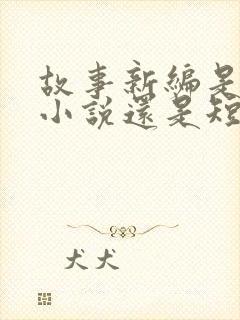 故事新編是
小說還是短
犬犬